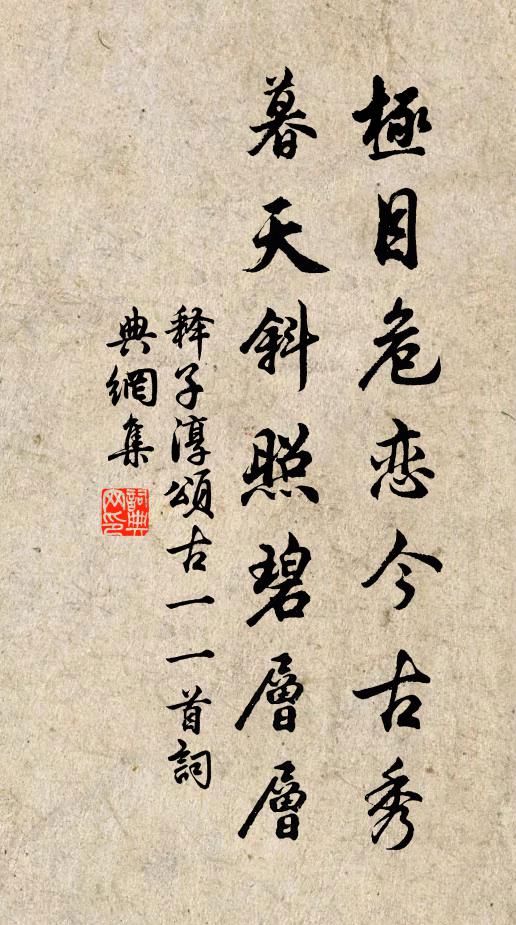 極目危恋今古秀
暮天斜照碧層層
释子淳頌古一一首詞
典網集
詞典
网印